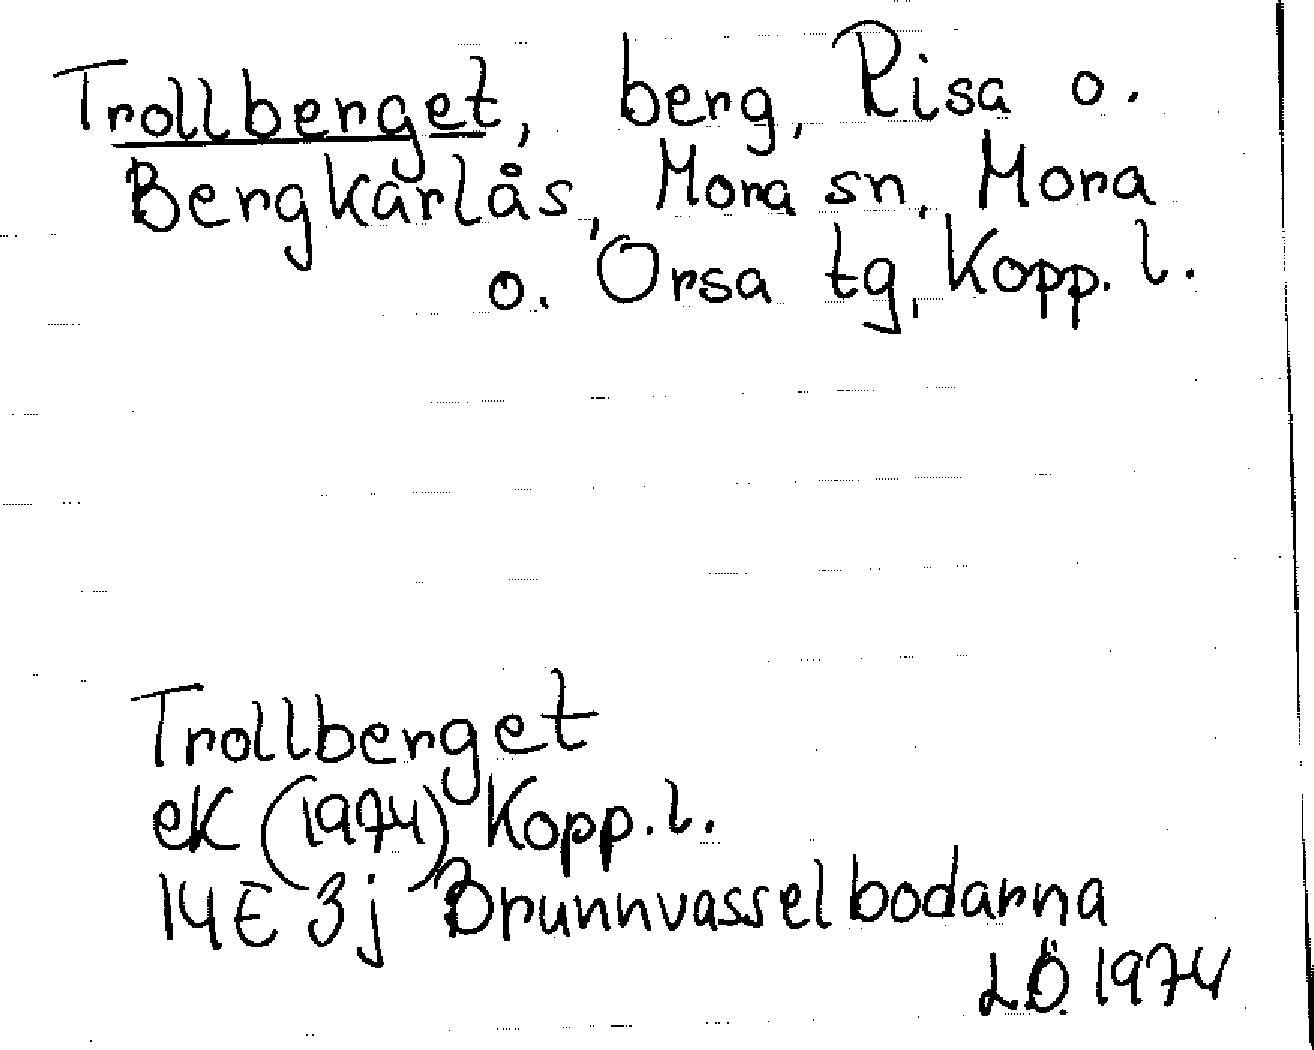 Trollberget, berg, Risa o.
Bergkarlås, Mora sn, Mora
o. Orsa tg, Kopp. l.
Trollberget
eK (1974) Kopp. l.
14E 3j Brunnvasselbodarna
LÖ. 1974